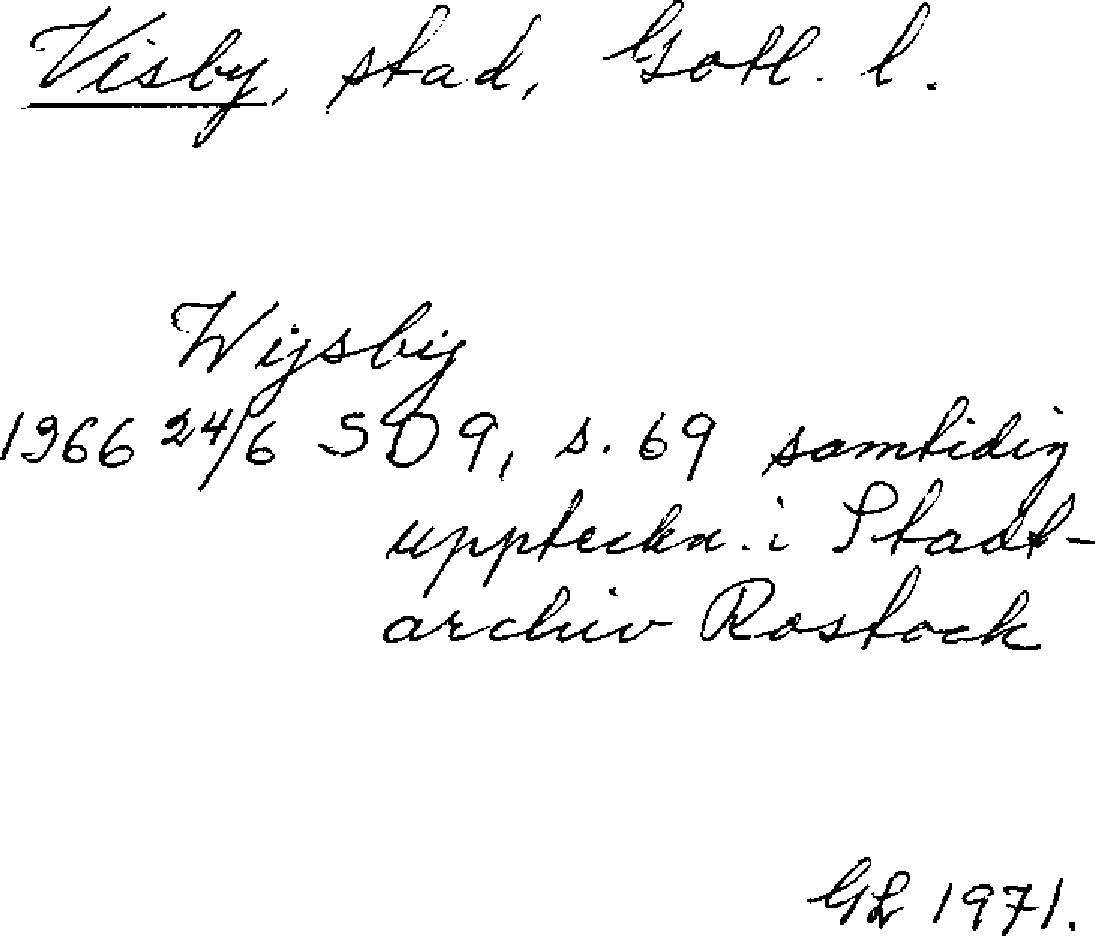 Visby, stad, Gotl. l.
Wijsbij
1366 24/6 SD 9, s. 69 samtidig
uppteckn. i Stadt-
archiv Rostock
GL 1971.